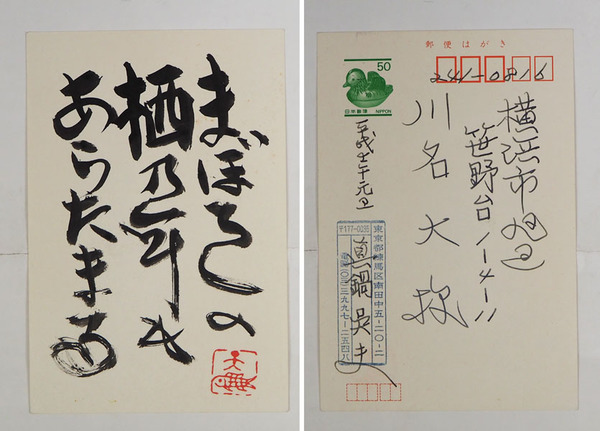 まぼろしの
栖乃年も
あらたまる
郵便はがき
50
日本郵便 NIPPON
241-0816
横浜市旭区
笹野台1-4-11
川名大様
平成壬午元旦
〒177-0035
東京都練馬区南田中五-二〇-二
眞鍋呉夫
電話〇三-三九九七-二五四八